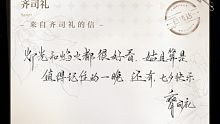 齐司礼
来自齐司礼的信
郊荒和焰火都很好看，姑且算是
值得记住的一晚，还有七夕快乐
齐司礼